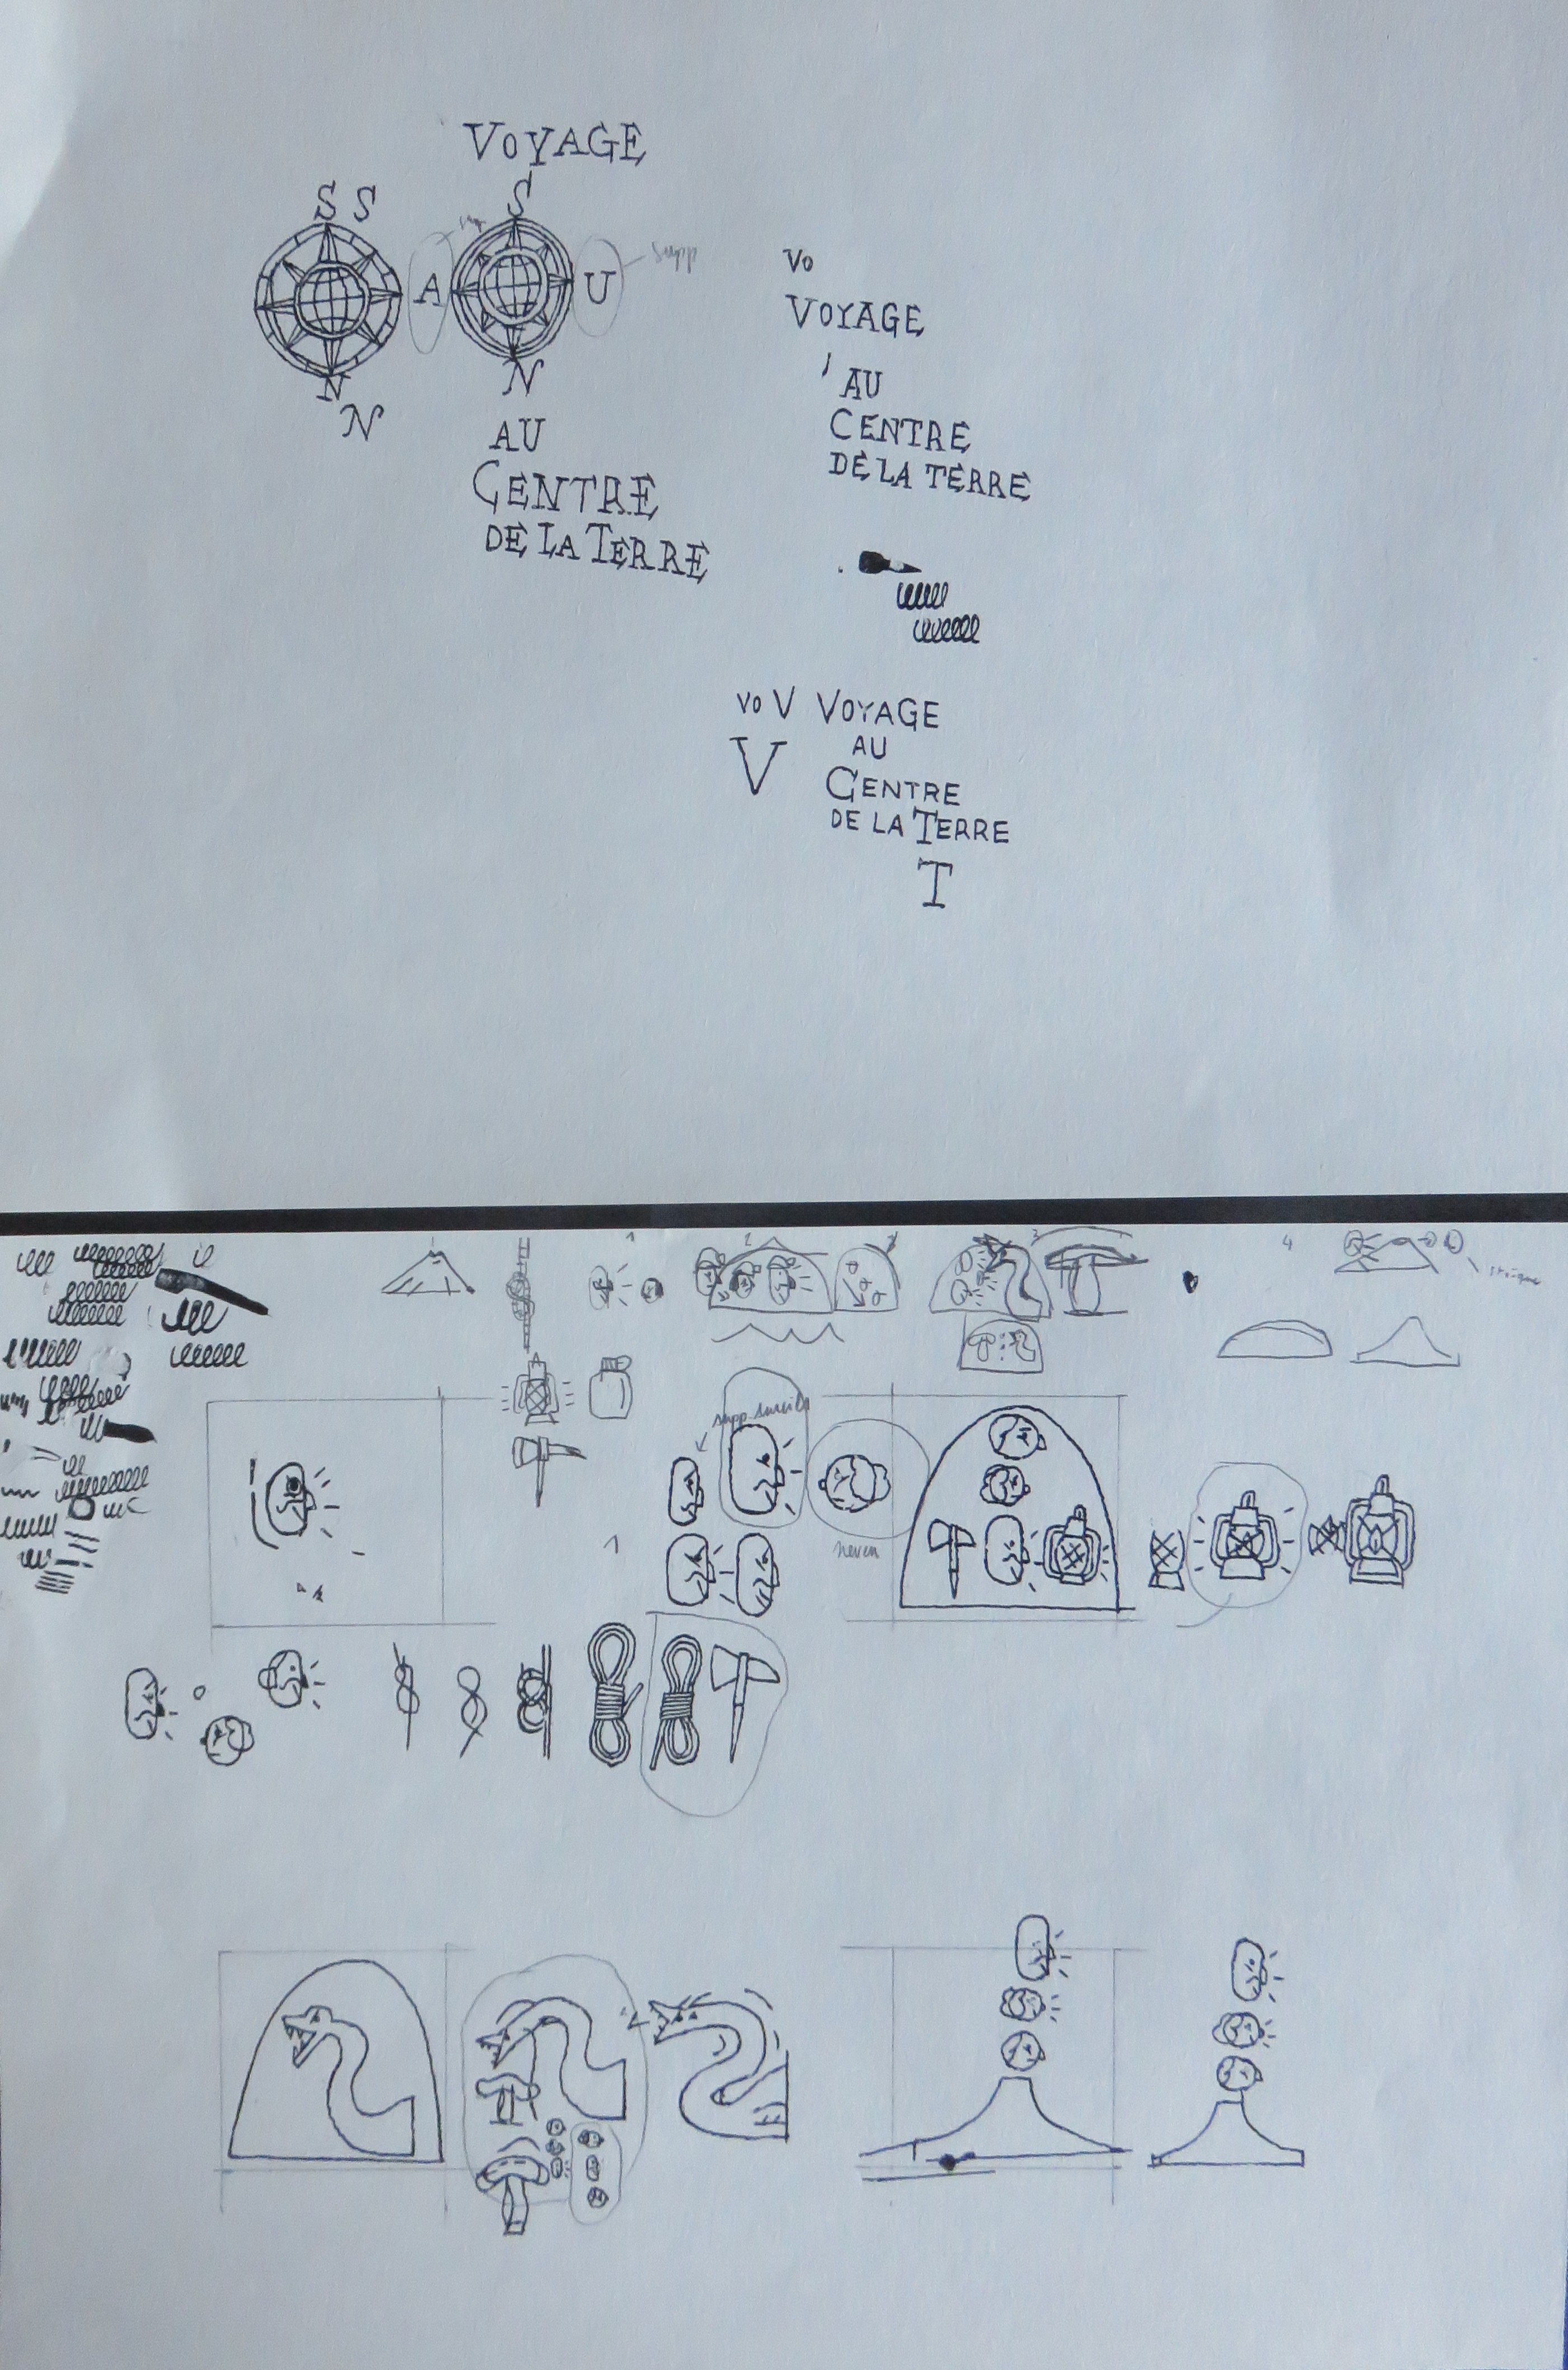 VOYAGE
S S
S
A
U
supp
N
N
N
AU
CENTRE
DE LA TERRE
VO
VOYAGE
AU
CENTRE
DE LA TERRE
VO V VOYAGE
V
AU
CENTRE
DE LA TERRE
T
1
2
3
4
supp sourcils
neveu
1